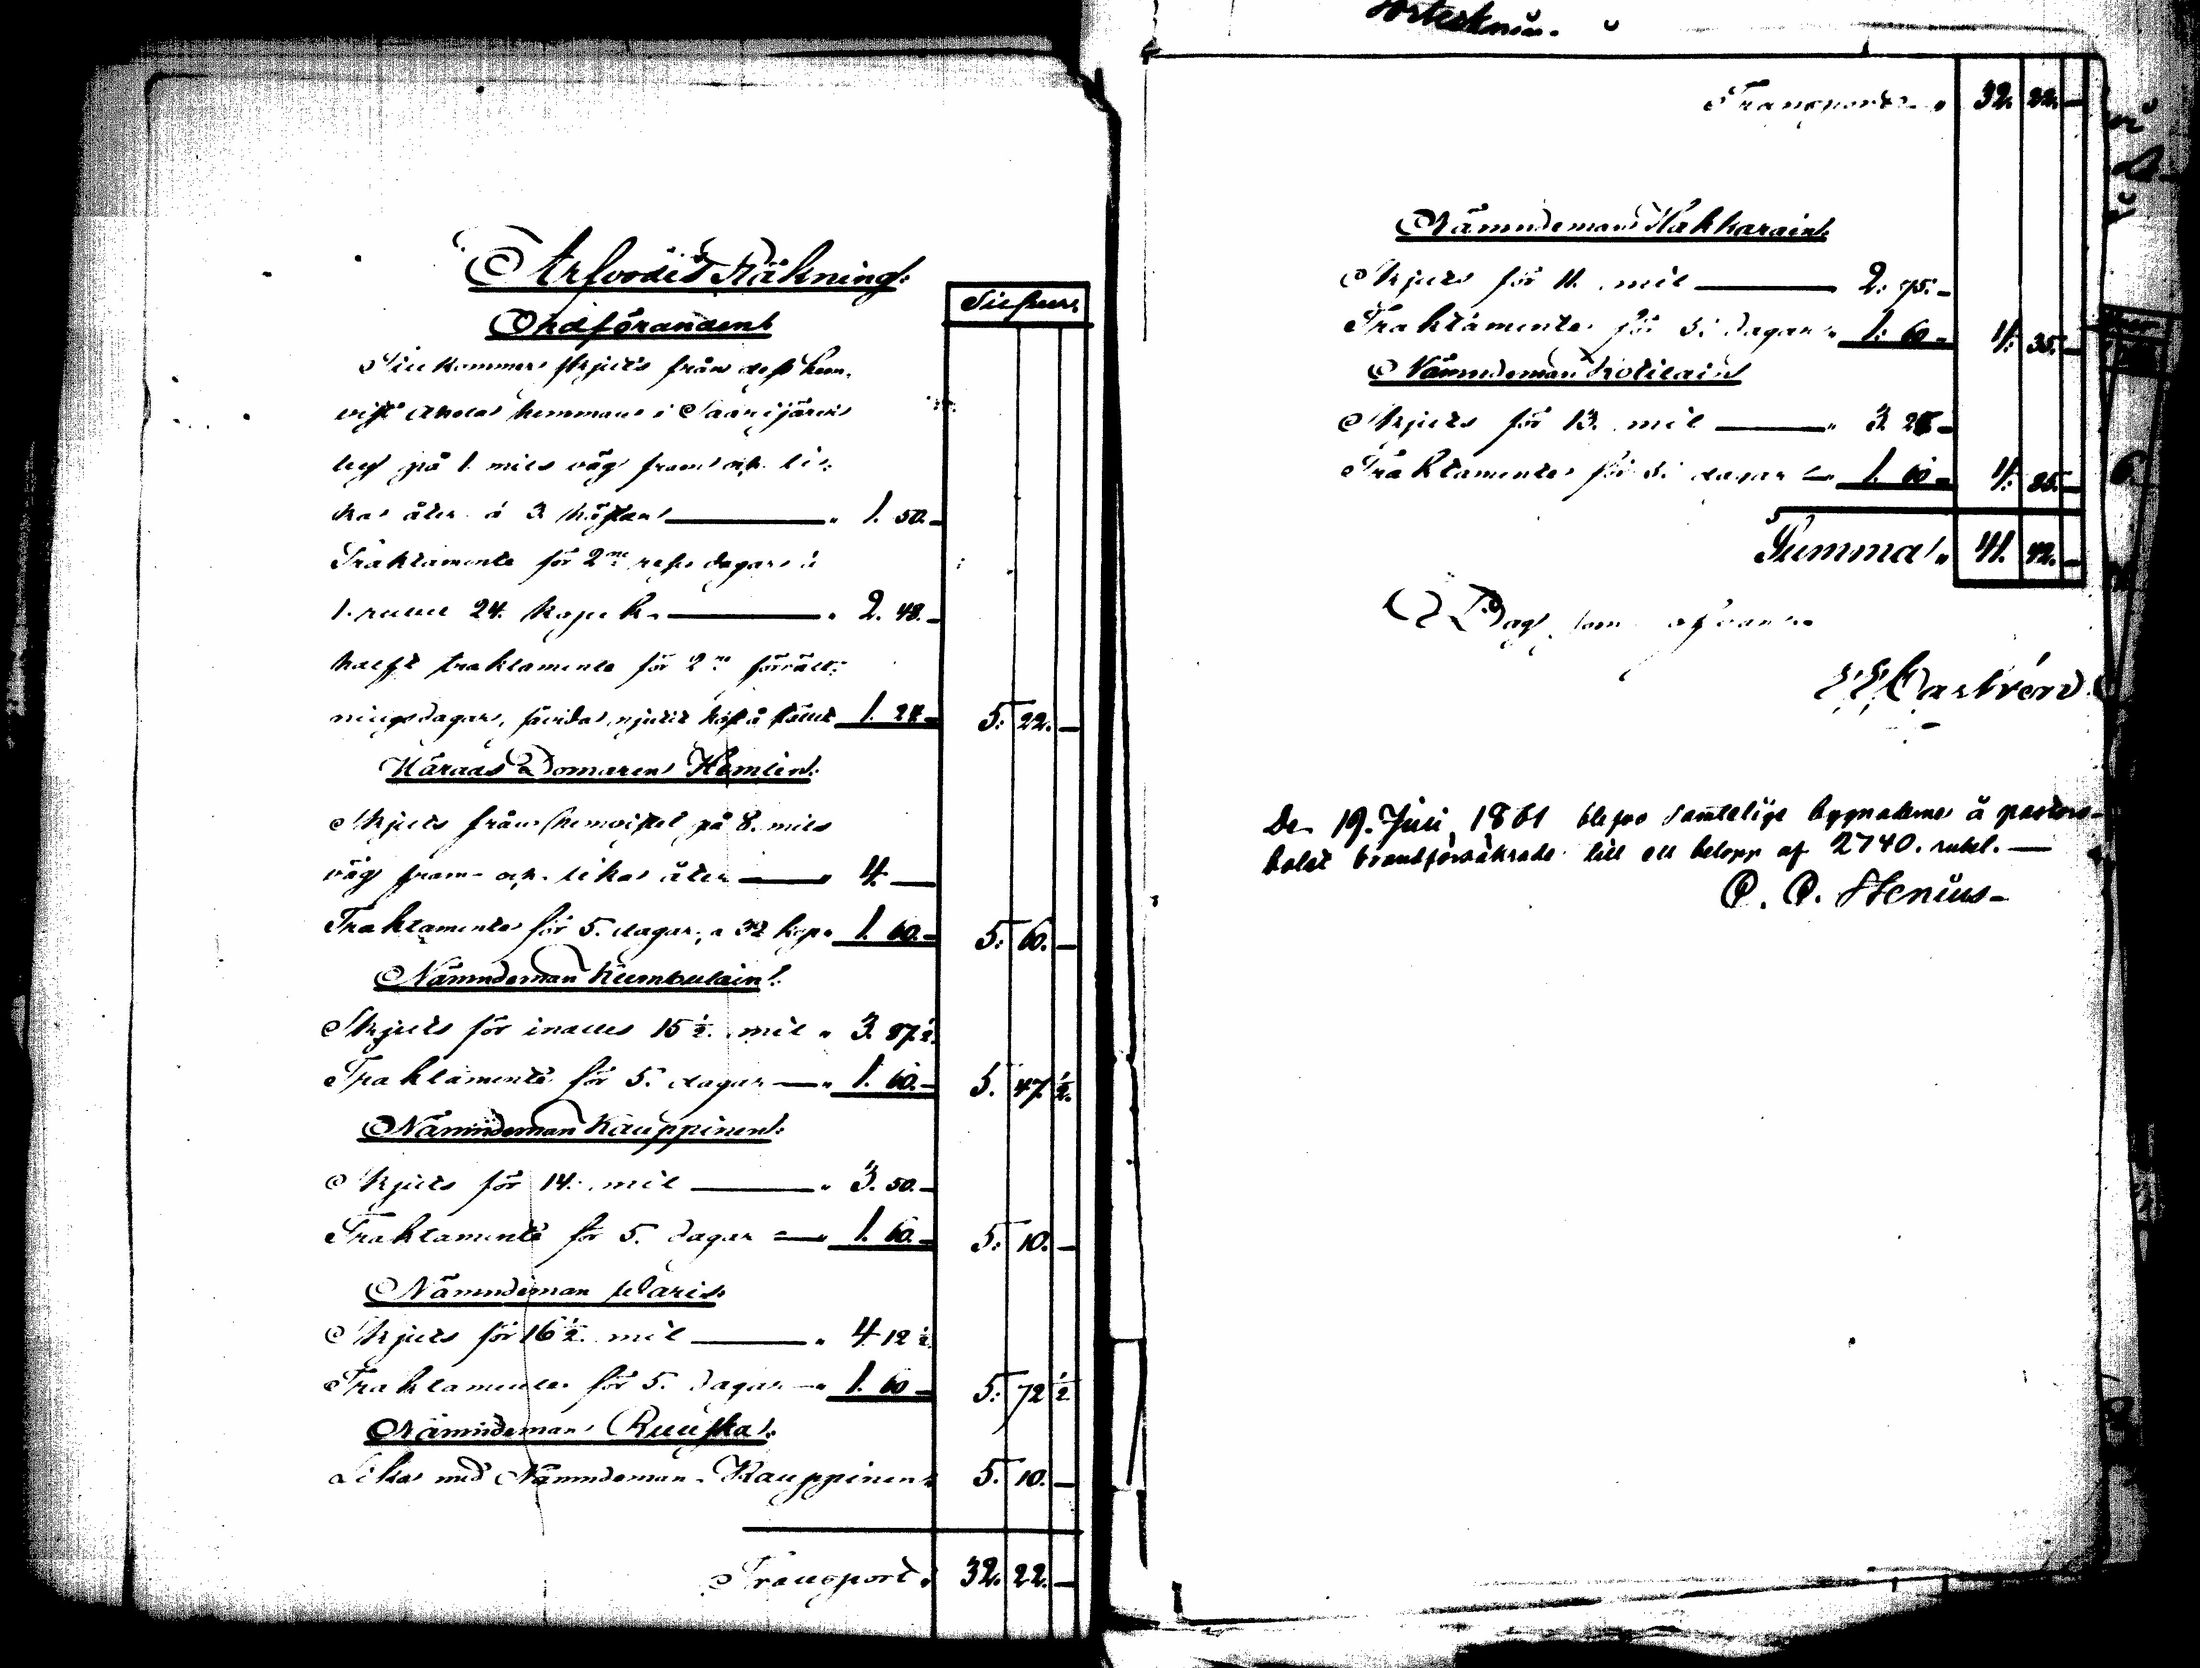 Arfvodes Räkning:
Silfver.
Ordföranden
Tillkommer skjuts från dess hem-
vist Ahola hemman i Saarijärvi
by på 1. mils väg fram och li-
ka åter á 3 hästar " 1. 50. -
Traktamente för 2ne rese dagar á
1. rubel 24. kopek " 2. 48. -
halft traktamente för 2ne förrätt-
ningsdagar, 1. 24 - 5. 22. -
Härads Domaren Hemlin:
Skjuts från hemvistet på 8. mils
väg fram- och lika åter " 4. -
Traktamente för 5. dagar, a 32 kop. 1. 60. - 5. 60. -
Nämndeman Kumpulain:
Skjuts för inalles 15 1/2. mil " 3. 87 1/2.
Traktamente för 5. dagar " 1. 60. - 5. 47 1/2.
Nämndeman Kauppinen:
Skjuts för 14. mil " 3. 50. -
Traktamente för 5. dagar " 1. 60. - 5. 10. -
Nämndeman
Skjuts för 16 1/2. mil " 4. 12 1/2.
Traktamente för 5. dagar " 1. 60 - 5. 72 1/2
Nämndeman Ruuska:
Lika med Nämndeman Kauppinen 5. 10. -
Transport " 32. 22. -
Transport " 32. 22. -
Nämndeman Hakkarain:
Skjuts för 11. mil 2. 75. -
Traktamente för 5. dagar " 1. 60 - 4. 35. -
Nämndeman Kotilain
Skjuts för 13. mil " 3. 25 -
Traktamente för 5. dagar " 1. 60 - 4. 85. -
Summa " 41. 42. -
Dag som ofvan.
Castrén
Den 19. Juli 1861 blefvo samtelige byggnaderne å pastors-
bolet brandförsäkrade till ett belopp af 2740. rubel. —
P. P. Stenius -